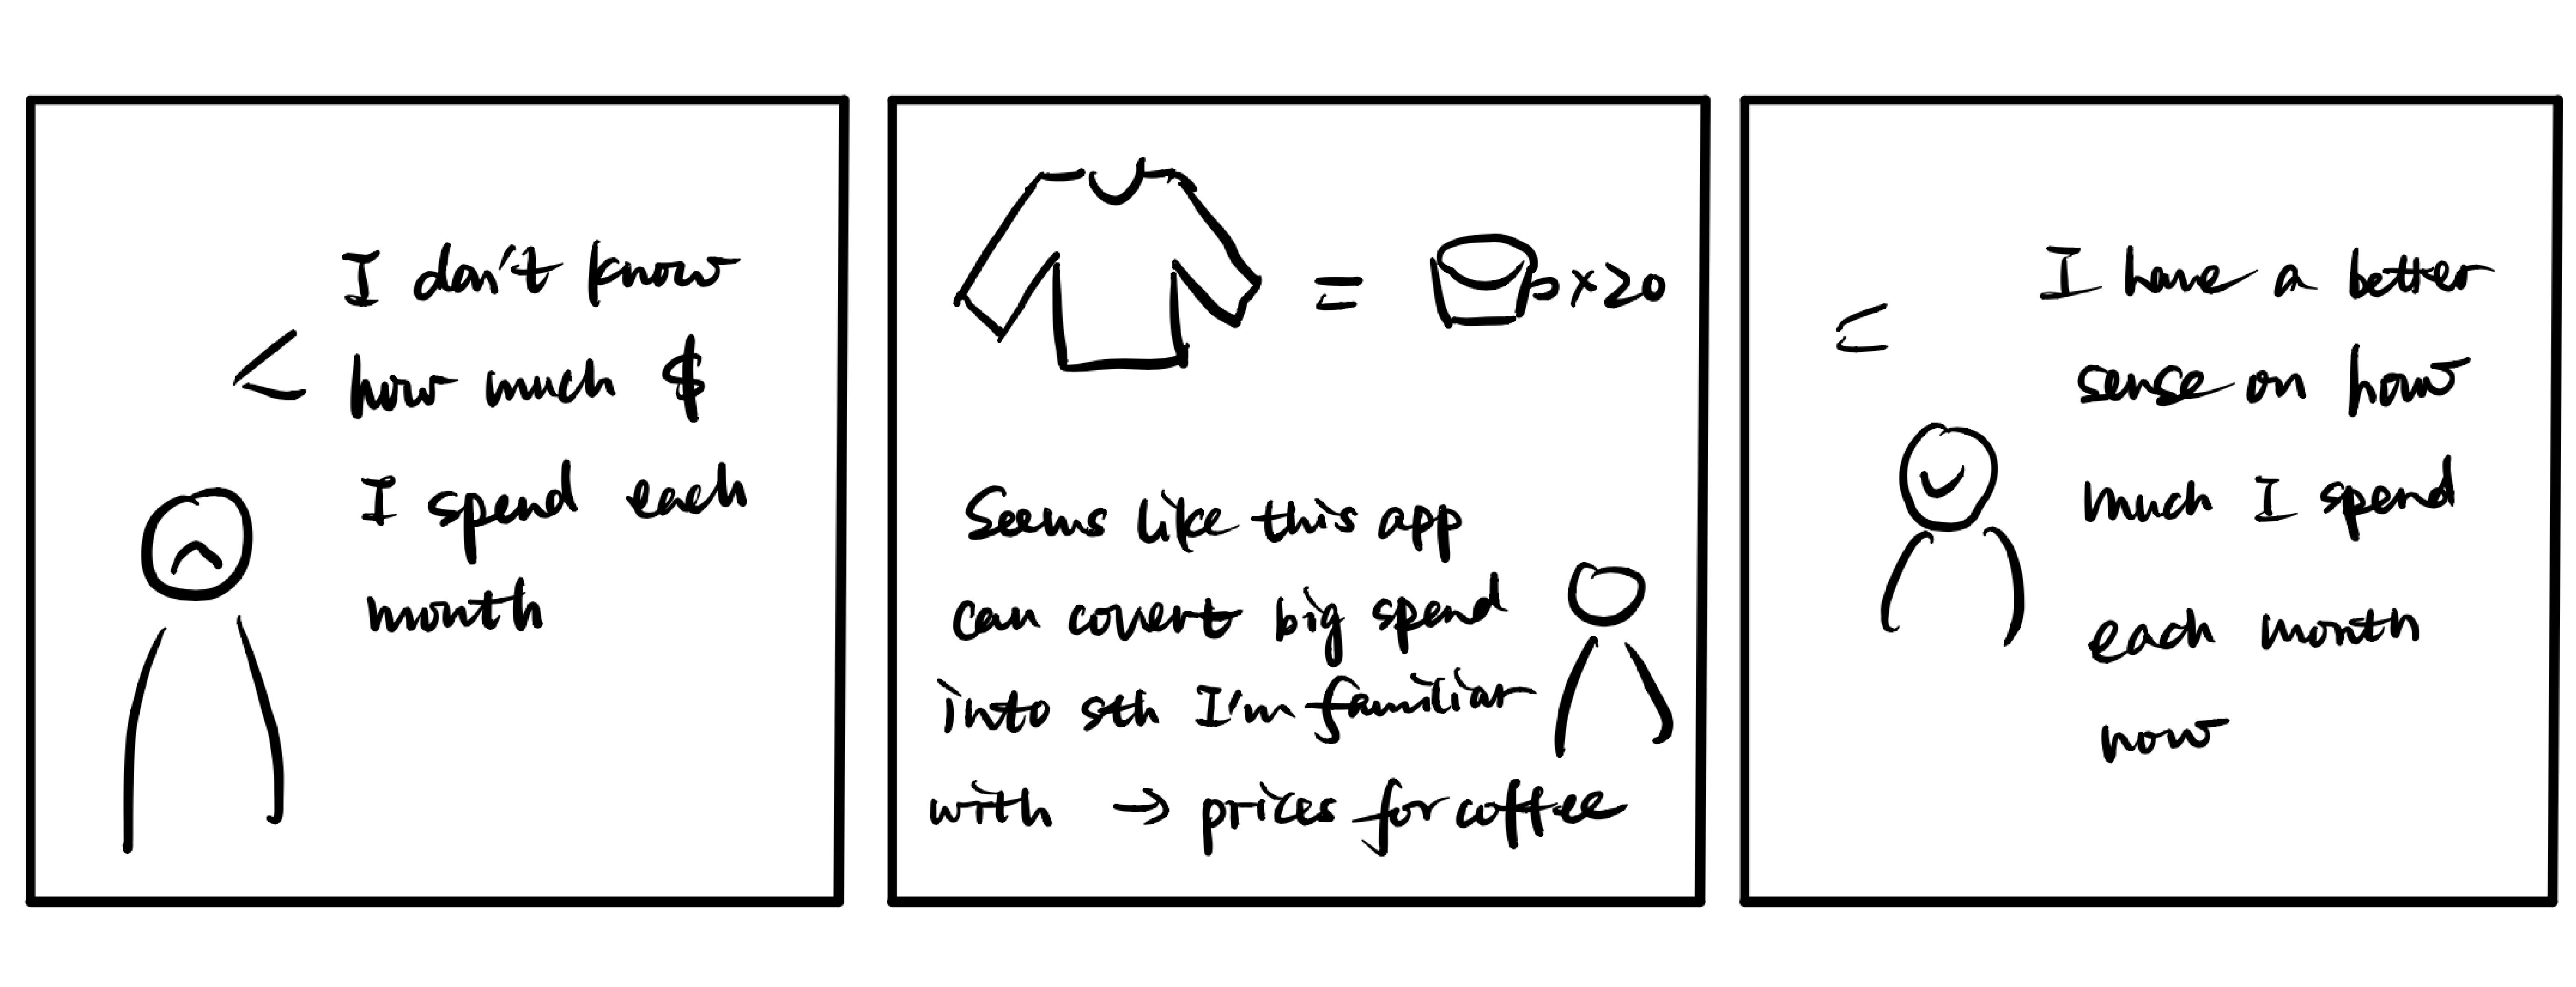 I don't know
how much $
I spend each
month
= ×20
Seems like this app
can covert big spend
into sth I'm familiar
with → prices for coffee
I have a better
sense on how
much I spend
each month
now